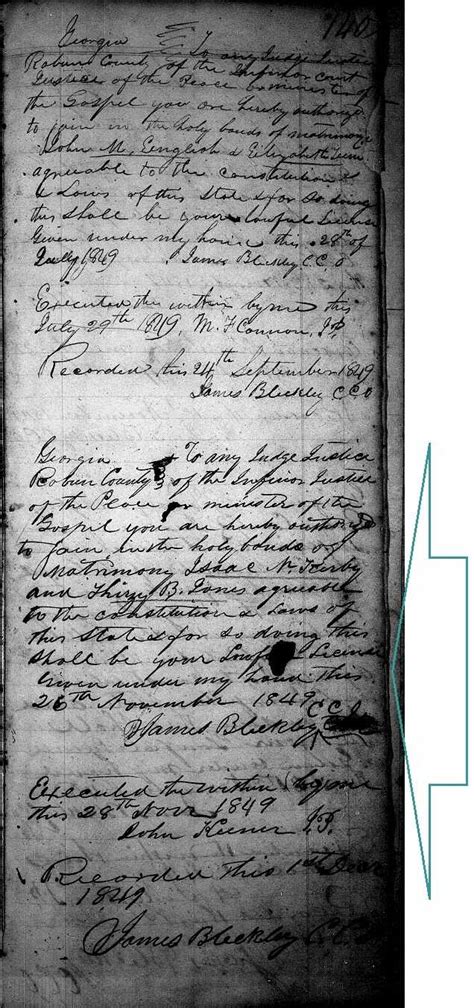 140
Georgia } To any Judge Justice
Rabun County } of the Inferior court
Justice of the Peace or minister of
the Gospel you are hereby authorized
to join in the holy bonds of matrimony
John M. English & Elizabeth
agreeable to the constitution &
Laws of this State & for so doing
this shall be your lawful License
Given under my hand this 28th of
July 1849 James Bleckley C.C.O
Executed the within by me this
July 29th 1849, M. F Cannon, J.P.
Recorded this 24th September 1849
James Bleckley C.C.O
Georgia To any Judge Justice
Rabun County } of the Inferior Justice
of the Peace or minister of the
Gospel you are hereby authorized
to join in the holy bonds of
Matrimony Isaac N. Kerby
and Thirzy B. Jones agreeable
to the constitution & Laws of
this State & for so doing this
shall be your Lawful License
Given under my hand this
26th November 1849
James Bleckley C.C.O
Executed the within by me
this 28th Novr 1849
John Keener J.P.
Recorded this 1st Decr
1849
James Bleckley C.C.O